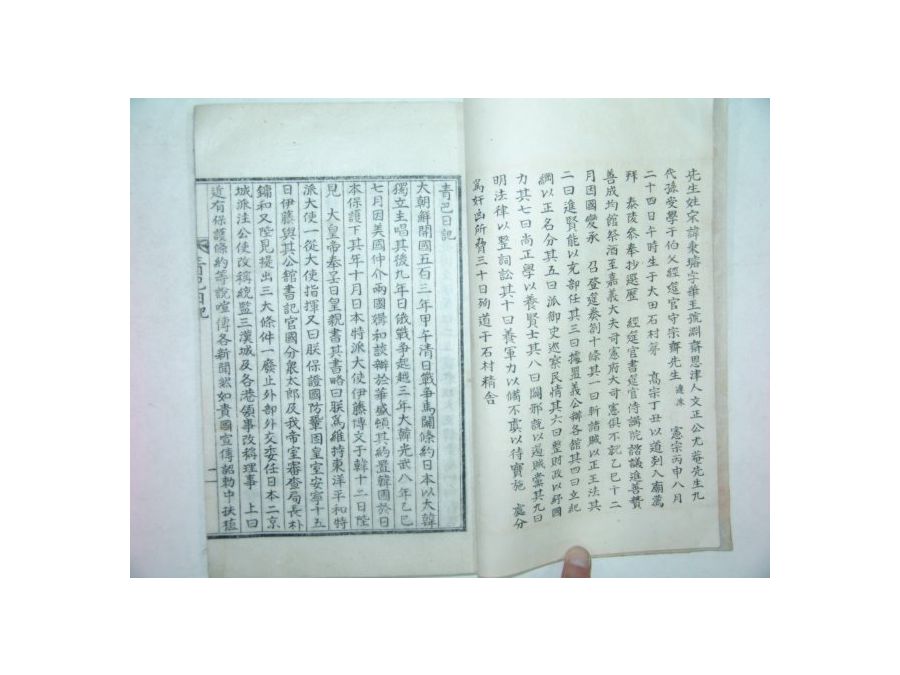 先生姓宋諱秉璿字華玉號淵齋恩津人文正公尤菴先生九
代孫受學于伯父經筵官守宗齋先生達洙 憲宗丙申八月
二十四日午時生于大田石村第 高宗丁丑以道到入廟薦
拜 泰陵參奉抄選歷 經筵官書筵官侍講院諮議進善贊
善成均館祭酒至嘉義大夫司憲府大司憲俱不記乙巳十二
月因國變承 召登筵奏劄十條其一曰斬諸賊以正王法其
二曰進賢能以充部任其三曰據盟義公辦各館其四曰立紀
綱以正名分其五曰派御史巡察民情其六曰整財政以紓國
力其七曰尚正學以養賢士其八曰闢邪說以遏賊黨其九曰
明法律以整詞訟其十曰養軍力以備不虞以待實施 處分
爲奸凶所脅三十日殉道于石村精舍
靑巴日記
大朝鮮開國五百三年甲午淸日戰爭馬關條約日本以大韓
獨立主唱其後九年日俄戰爭起越三年大韓光武八年乙巳
七月因美國仲介兩國媾和談辦於華盛頓其約置韓國於日
本保護下其年十月日本特派大使伊藤博文于韓十二日陛
見 大皇帝奉呈日皇親書其書略曰朕爲維持東洋平和特
派大使一從大使指揮又曰朕保證國防鞏固皇室安寧十五
日伊藤與其公館書記官國分象太郎及我帝室審查局長朴
鏞和又陛見提出三大條件一廢止外部外交委任日本二京
城派法公使改稱統監三漢城及各港領事改稱理事 上曰
近有保護條約等說喧傳各新聞然如貴國宣傳詔勅中扶植
靑巴日記
一